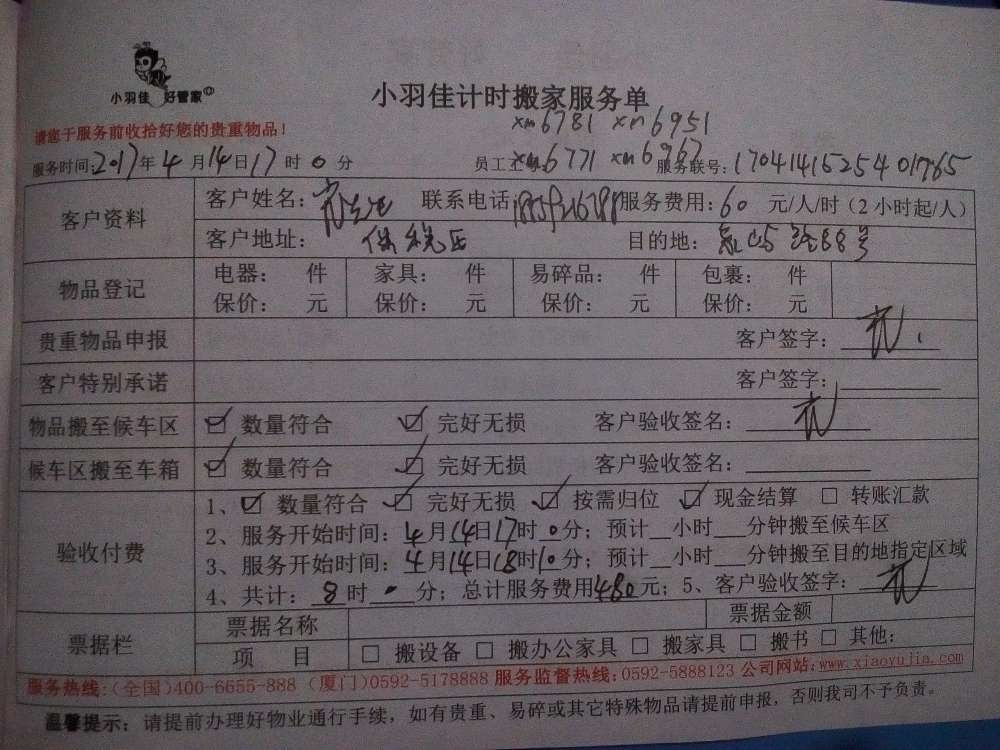 小羽佳 好管家
小羽佳计时搬家服务单
xm6781 xm6951
请您于服务前收拾好您的贵重物品！
xm6771 xm6967
服务时间:2017年4月14日17时0分 员工工 服务联号:1704141525401765
客户资料 客户姓名: 联系电话 服务费用:60 元/人/时（2小时起/人）
客户地址: 保税区 目的地: 路88号
物品登记 电器: 件 家具: 件 易碎品: 件 包裹: 件
保价: 元 保价: 元 保价: 元 保价: 元
贵重物品申报 客户签字:
客户特别承诺 客户签字:
物品搬至候车区 ☑ 数量符合 ☑ 完好无损 客户验收签名:
候车区搬至车箱 ☑ 数量符合 ☑ 完好无损 客户验收签名:
验收付费 1、☑ 数量符合 ☑ 完好无损 ☑ 按需归位 ☑ 现金结算 □ 转账汇款
2、服务开始时间: 4月14日17时0分; 预计__小时___分钟搬至候车区
3、服务开始时间: 4月14日18时10分; 预计__小时___分钟搬至目的地指定区域
4、共计: 8时0分; 总计服务费用480元; 5、客户验收签字:
票据栏 票据名称 票据金额
项 目 □ 搬设备 □ 搬办公家具 □ 搬家具 □ 搬书 □ 其他:
服务热线:(全国)400-6655-888 (厦门)0592-5178888 服务监督热线:0592-5888123 公司网站:www.xiaoyujia.com
温馨提示: 请提前办理好物业通行手续，如有贵重、易碎或其它特殊物品请提前申报，否则我司不予负责。